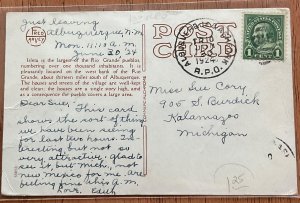 Just leaving
Albuquerque, N.M.
Mon. 11:10 A.M.
June 30 '24
POST
CARD
Isleta is the largest of the Rio Grande pueblos, numbering over one thousand inhabitants. It is pleasantly located on the west bank of the Rio Grande, about thirteen miles south of Albuquerque. The houses and streets of the village are well-kept and clean; the houses are a single story high, and as a consequence the pueblo covers a large area.
Dear Sue,
This card
shows the sort of thing
we have been riding
for the last two hours. In-
teresting, but not so
very attractive. Glad to
see it, but mich., not
new mexico for me. are
feeling fine this A.M.
Love, Edith
1924
R.P.O.
1 CENT 1
Miss Sue Cory
905 S. Burdick
Kalamazoo
Michigan
125